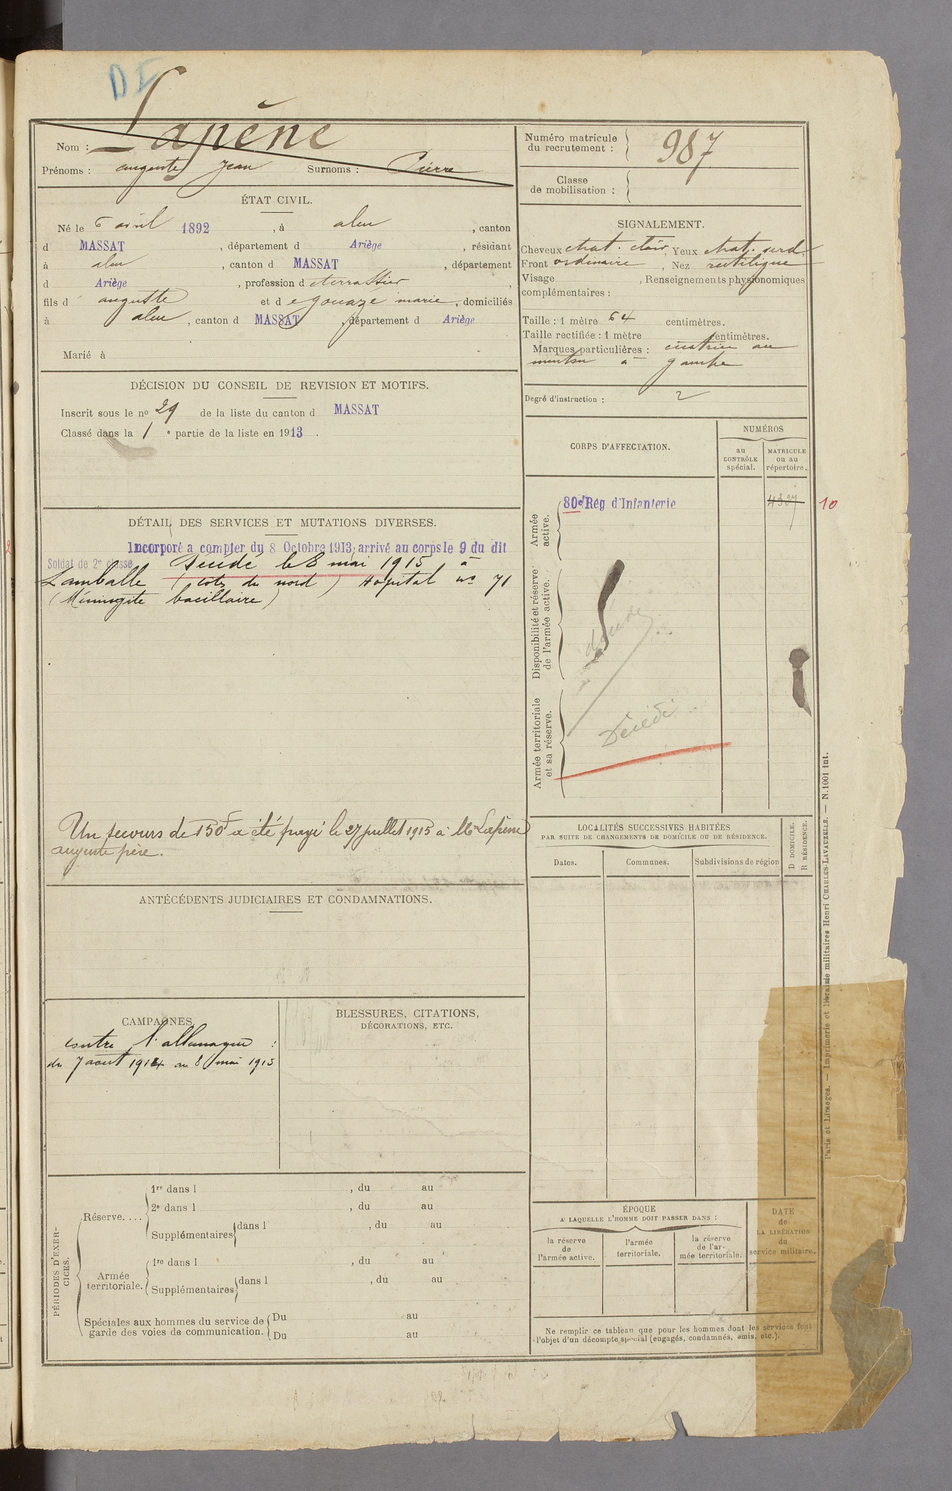 DE
Nom : Lapène
Prénoms : auguste Jean Surnoms : Pierre
Numéro matricule du recrutement : 987
Classe de mobilisation :
ÉTAT CIVIL.
Né le 6 avril 1892 , à aleu , canton
d MASSAT , département d Ariège , résidant
à aleu , canton d MASSAT , département
d Ariège , profession d e terrassier ,
fils d' auguste et d e gouaze marie , domiciliés
à aleu , canton d MASSAT , département d Ariège
Marié à
SIGNALEMENT.
Cheveux chat. clair , Yeux chat. verd.
Front ordinaire , Nez rectiligne
Visage , Renseignements physionomiques
complémentaires :
Taille : 1 mètre 64 centimètres.
Taille rectifiée : 1 mètre centimètres.
Marques particulières : cicatrice au
menton à gauche
Degré d'instruction : 2
DÉCISION DU CONSEIL DE REVISION ET MOTIFS.
Inscrit sous le no 29 de la liste du canton d MASSAT
Classé dans la 1 e partie de la liste en 1913 .
CORPS D'AFFECTATION.
NUMÉROS
au CONTRÔLE spécial.
MATRICULE ou au répertoire.
Armée active.
80e Rég d'Infanterie
10
Disponibilité et réserve de l'armée active.
décédé
Armée territoriale et sa réserve.
Décédé
DÉTAIL DES SERVICES ET MUTATIONS DIVERSES.
Incorporé a compter du 8 Octobre 1913, arrivé au corps le 9 du dit
Soldat de 2e classe Décédé le 8 mai 1915 à
Lamballe (côtes du nord) hôpital no 71
(Méningite bacillaire)
Un secours de 150F a été payé le 27 juillet 1915 à Mr Lapène
auguste père.
LOCALITÉS SUCCESSIVES HABITÉES
PAR SUITE DE CHANGEMENTS DE DOMICILE OU DE RÉSIDENCE.
Dates. Communes. Subdivisions de région
D DOMICILE.
R RÉSIDENCE.
ANTÉCÉDENTS JUDICIAIRES ET CONDAMNATIONS.
CAMPAGNES
contre l'allemagne :
du 7 août 1914 au 8 mai 1915
BLESSURES, CITATIONS,
DÉCORATIONS, ETC.
PÉRIODES D'EXERCICES.
Réserve....
1re dans l , du au
2e dans l , du au
Supplémentaires dans l , du au
Armée territoriale.
1re dans l , du au
Supplémentaires dans l , du au
Spéciales aux hommes du service de garde des voies de communication.
Du au
Du au
ÉPOQUE
A LAQUELLE L'HOMME DOIT PASSER DANS :
la réserve de l'armée active.
l'armée territoriale.
la réserve de l'armée territoriale.
DATE de LA LIBÉRATION du service militaire.
Ne remplir ce tableau que pour les hommes dont les services font
l'objet d'un décompte spécial (engagés, condamnés, omis, etc.).
Paris et Limoges. — Imprimerie et Librairie militaires Henri CHARLES-LAVAUZELLE. — N. 1001 int.